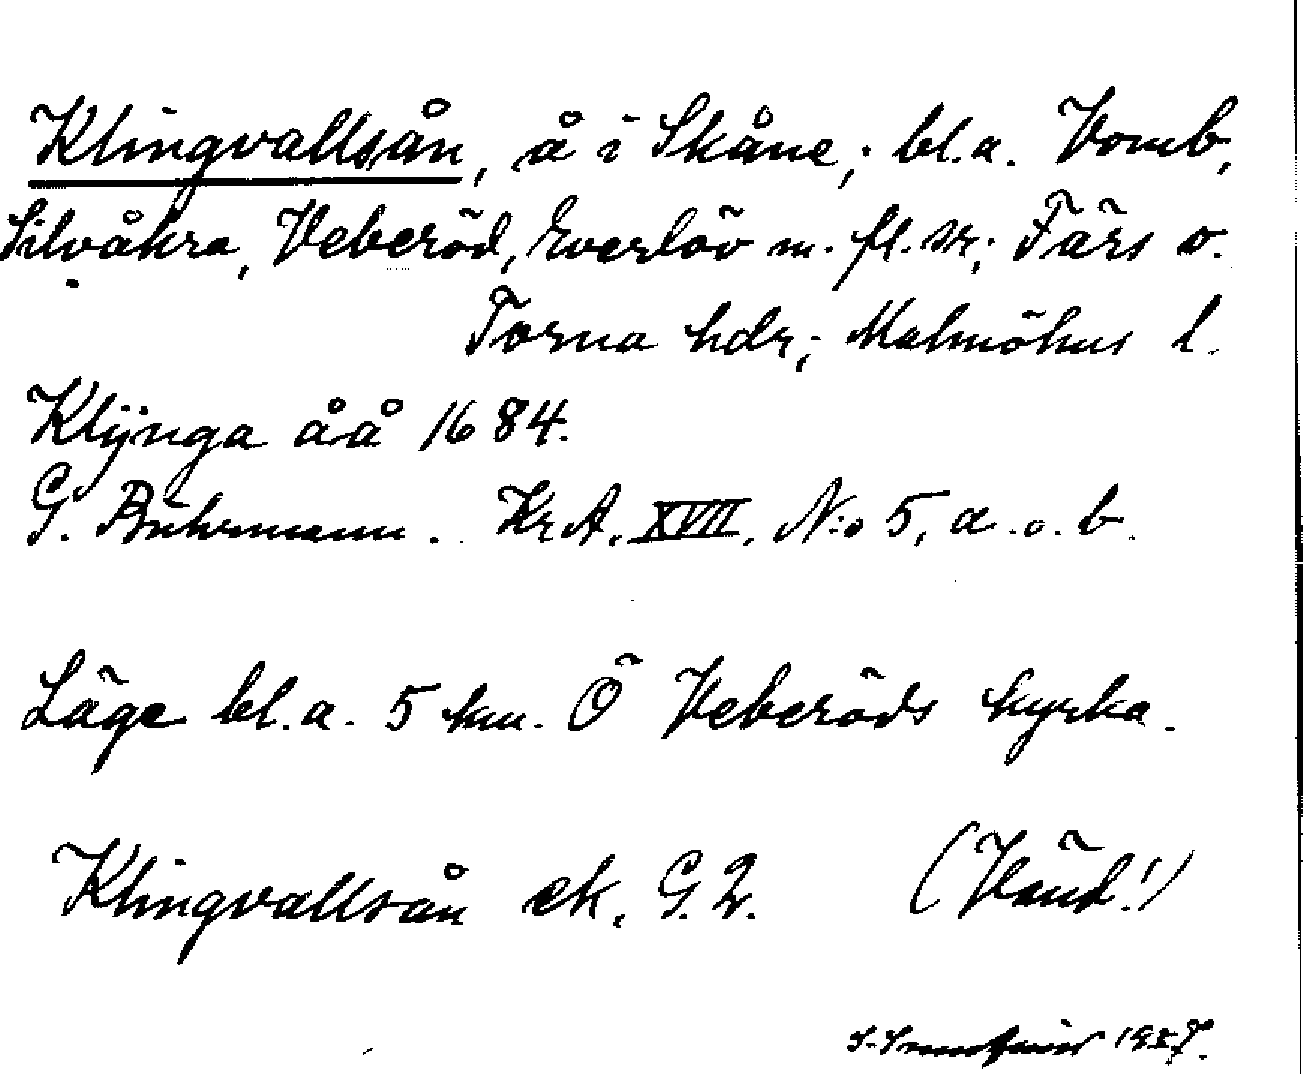 Klingvallsån, å i Skåne; bl.a. Vomb,
Silvåkra, Veberöd, Everlöv m. fl. snr; Färs o.
Torna hdr; Malmöhus l.
Klijnga åå 1684.
G. Buhrmann. KrA. XVII. N:o 5, a. o. b.
Läge bl.a. 5 km. Ö Veberöds kyrka.
Klingvallsån ek. G. 2. (Vänd!)
1927.